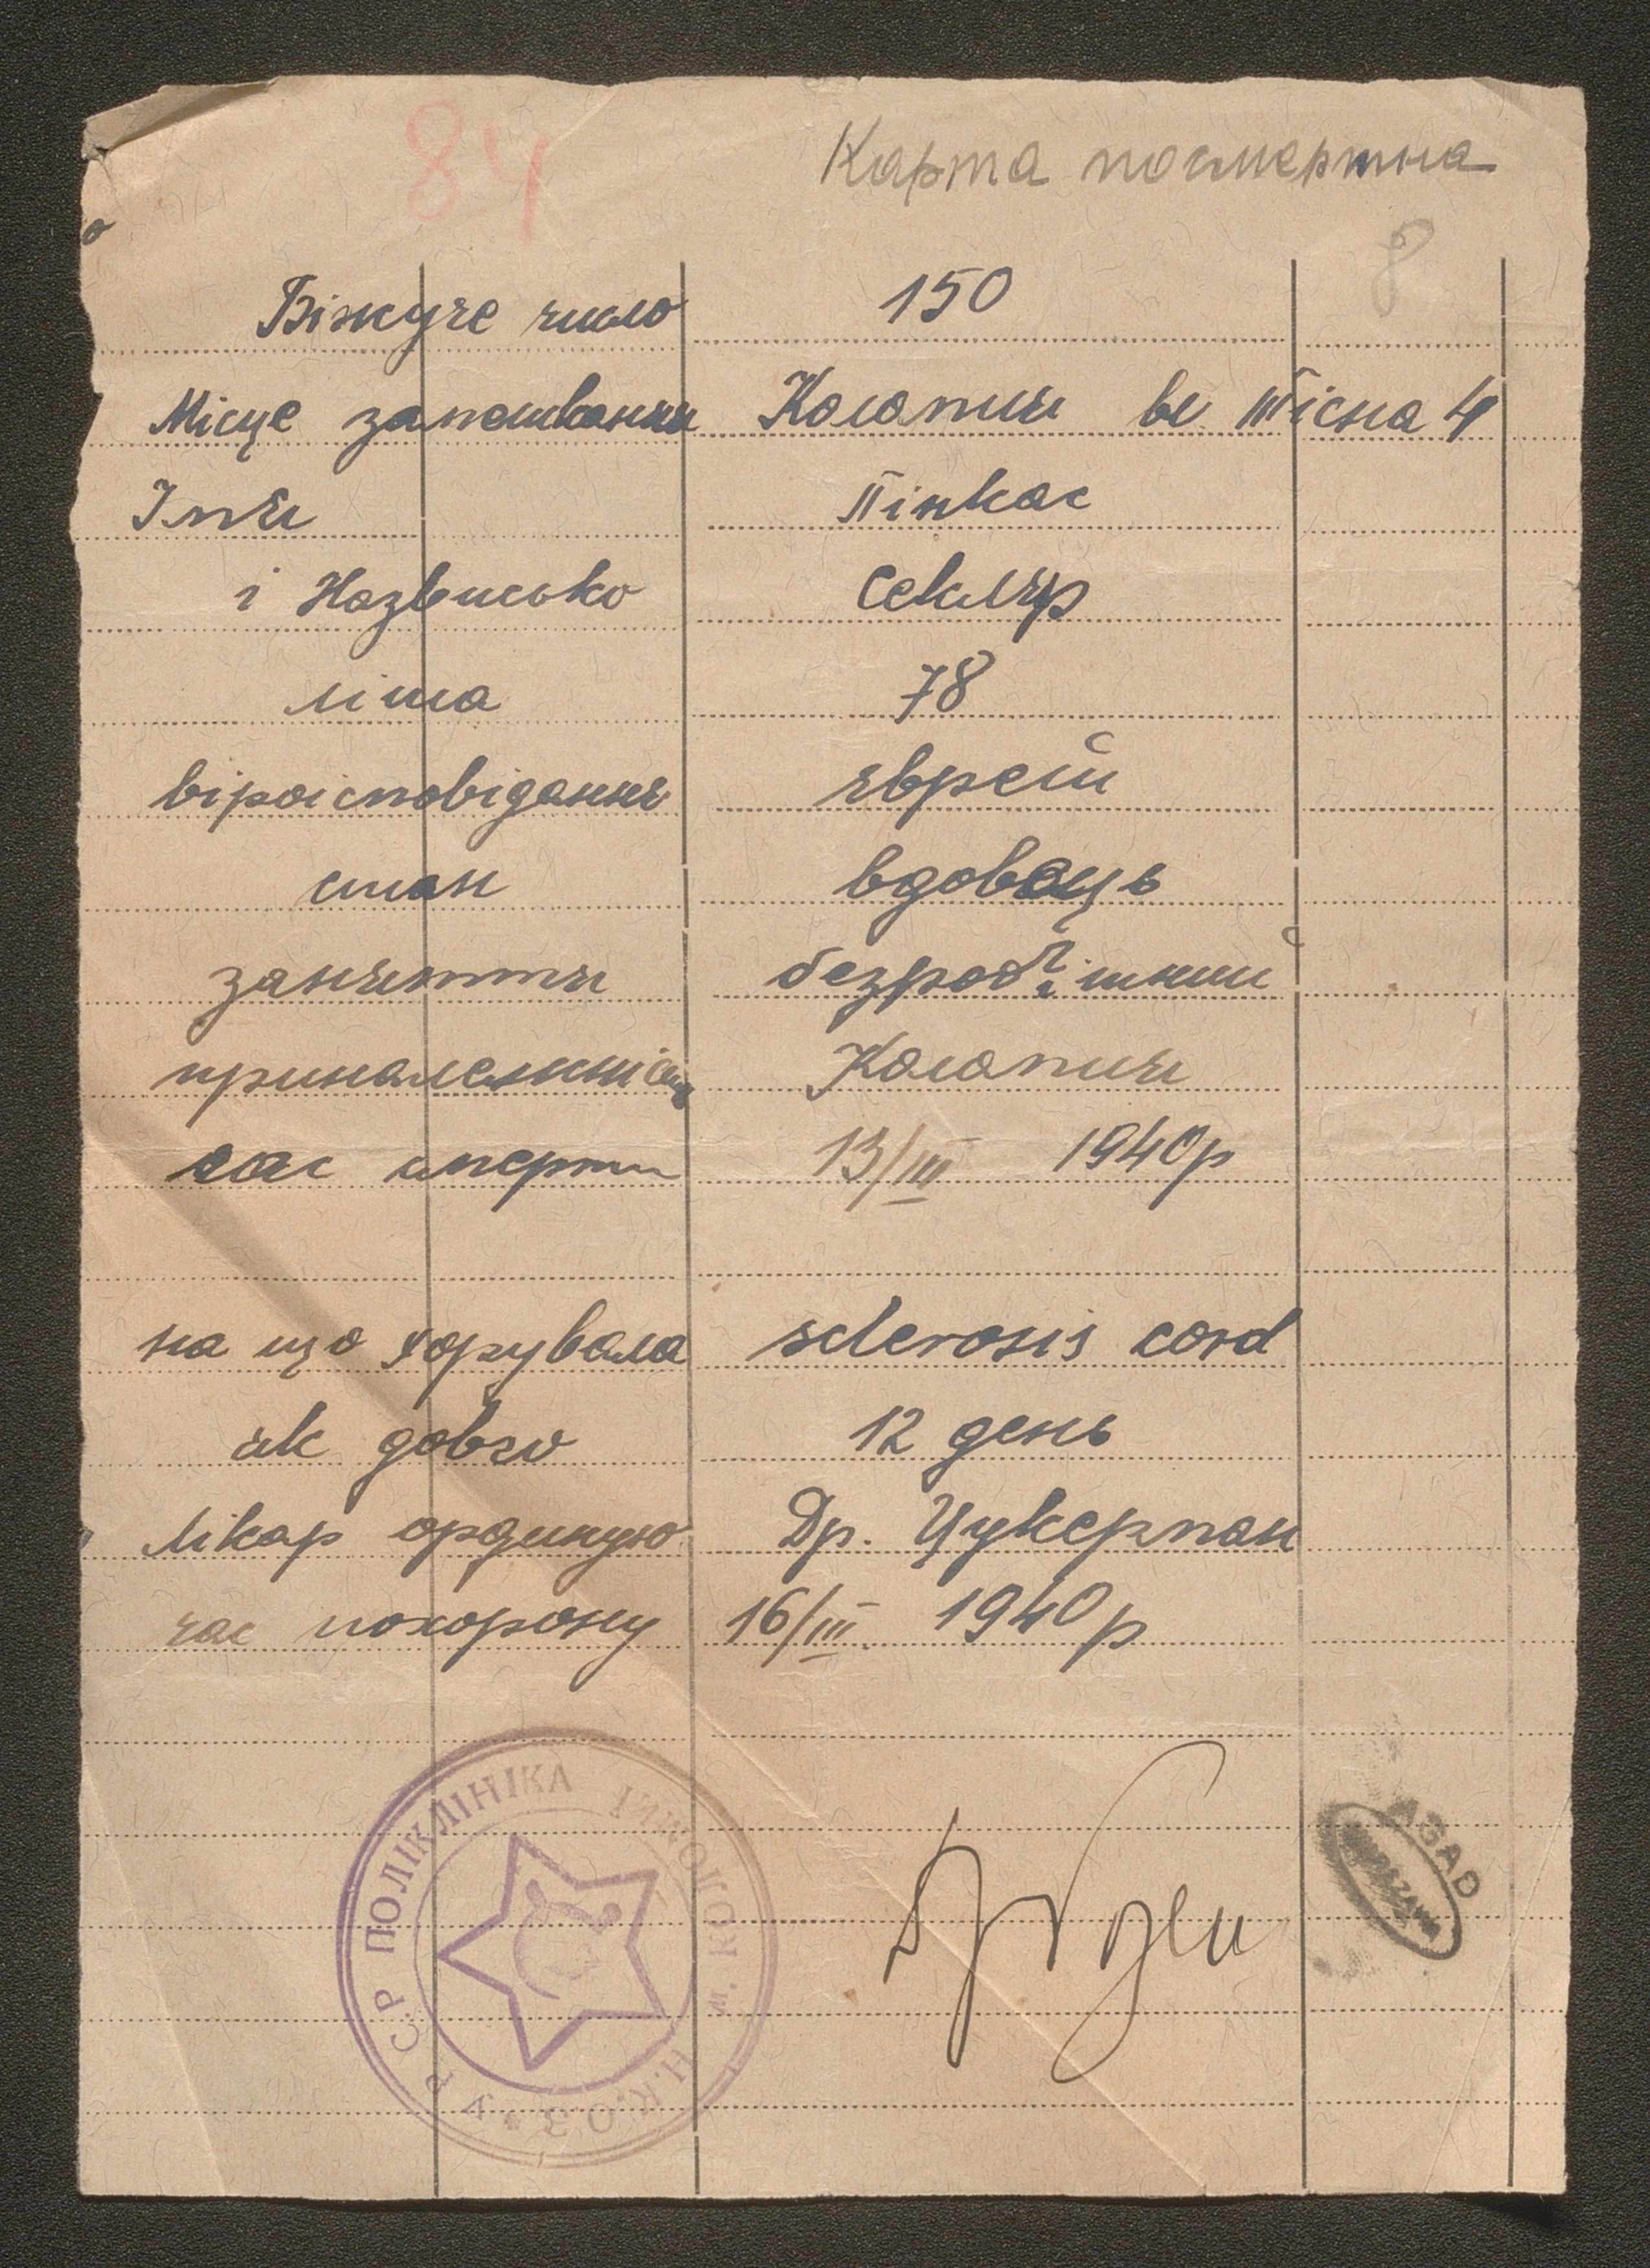 84
Карта посмертна
8
Біжуче число 150
Місце замешкання Коломия вл. Тісна 4
Імя Пінкас
і Назвисько Секляр
літа 78
віроісповідання яврей
стан вдовець
заняття безробітний
приналежність Коломия
час смерти 13/III 1940р
на що хорувала sclerosis cord
як довго 12 день
Лікар ординую Др. Цукерман
час похорону 16/III. 1940р
Н.К.О.З * У Р С.Р ПОЛІКЛІНІКА м. КОЛОМИЇ
AGAD